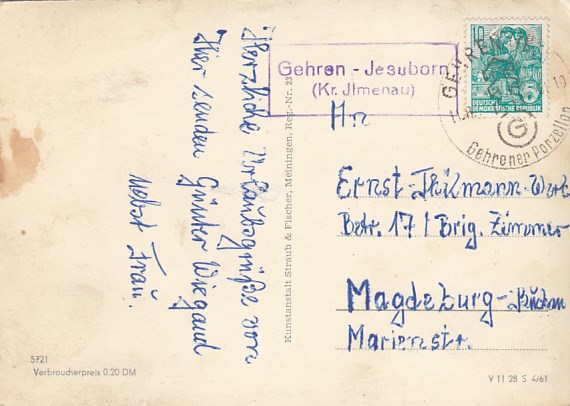 Herzliche Urlaubsgrüße von
Ihier senden Günter Wiegand
nebst Frau.
Kunstanstalt Straub & Fischer, Meiningen, Reg.-Nr. 23
5721
Verbraucherpreis 0.20 DM
Gehren - Jesuborn
(Kr. Jlmenau)
10
DEUTSCHE
DEMOKRATISCHE
GEHREN
G
Gehrener Porzellan
An
Ernst-Thälmann-Werk
Betr. 17 / Brig. Zimmer
Magdeburg-Buckau
Marienstr.
V 11 28 S 4/61